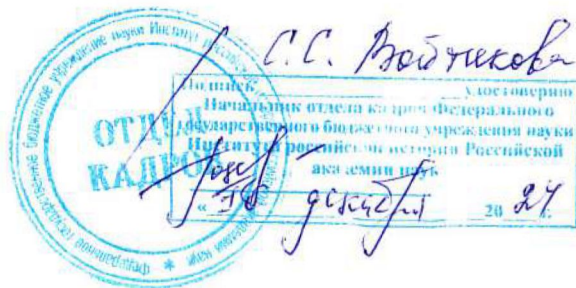 С.С. Войтикова
Подпись удостоверяю
Начальник отдела кадров Федерального
государственного бюджетного учреждения науки
Института российской истории Российской
академии наук
« 18 декабря 20 24 г.
ОТДЕЛ
КАДРОВ
Федеральное государственное бюджетное учреждение науки Институт российской истории Российской академии наук *